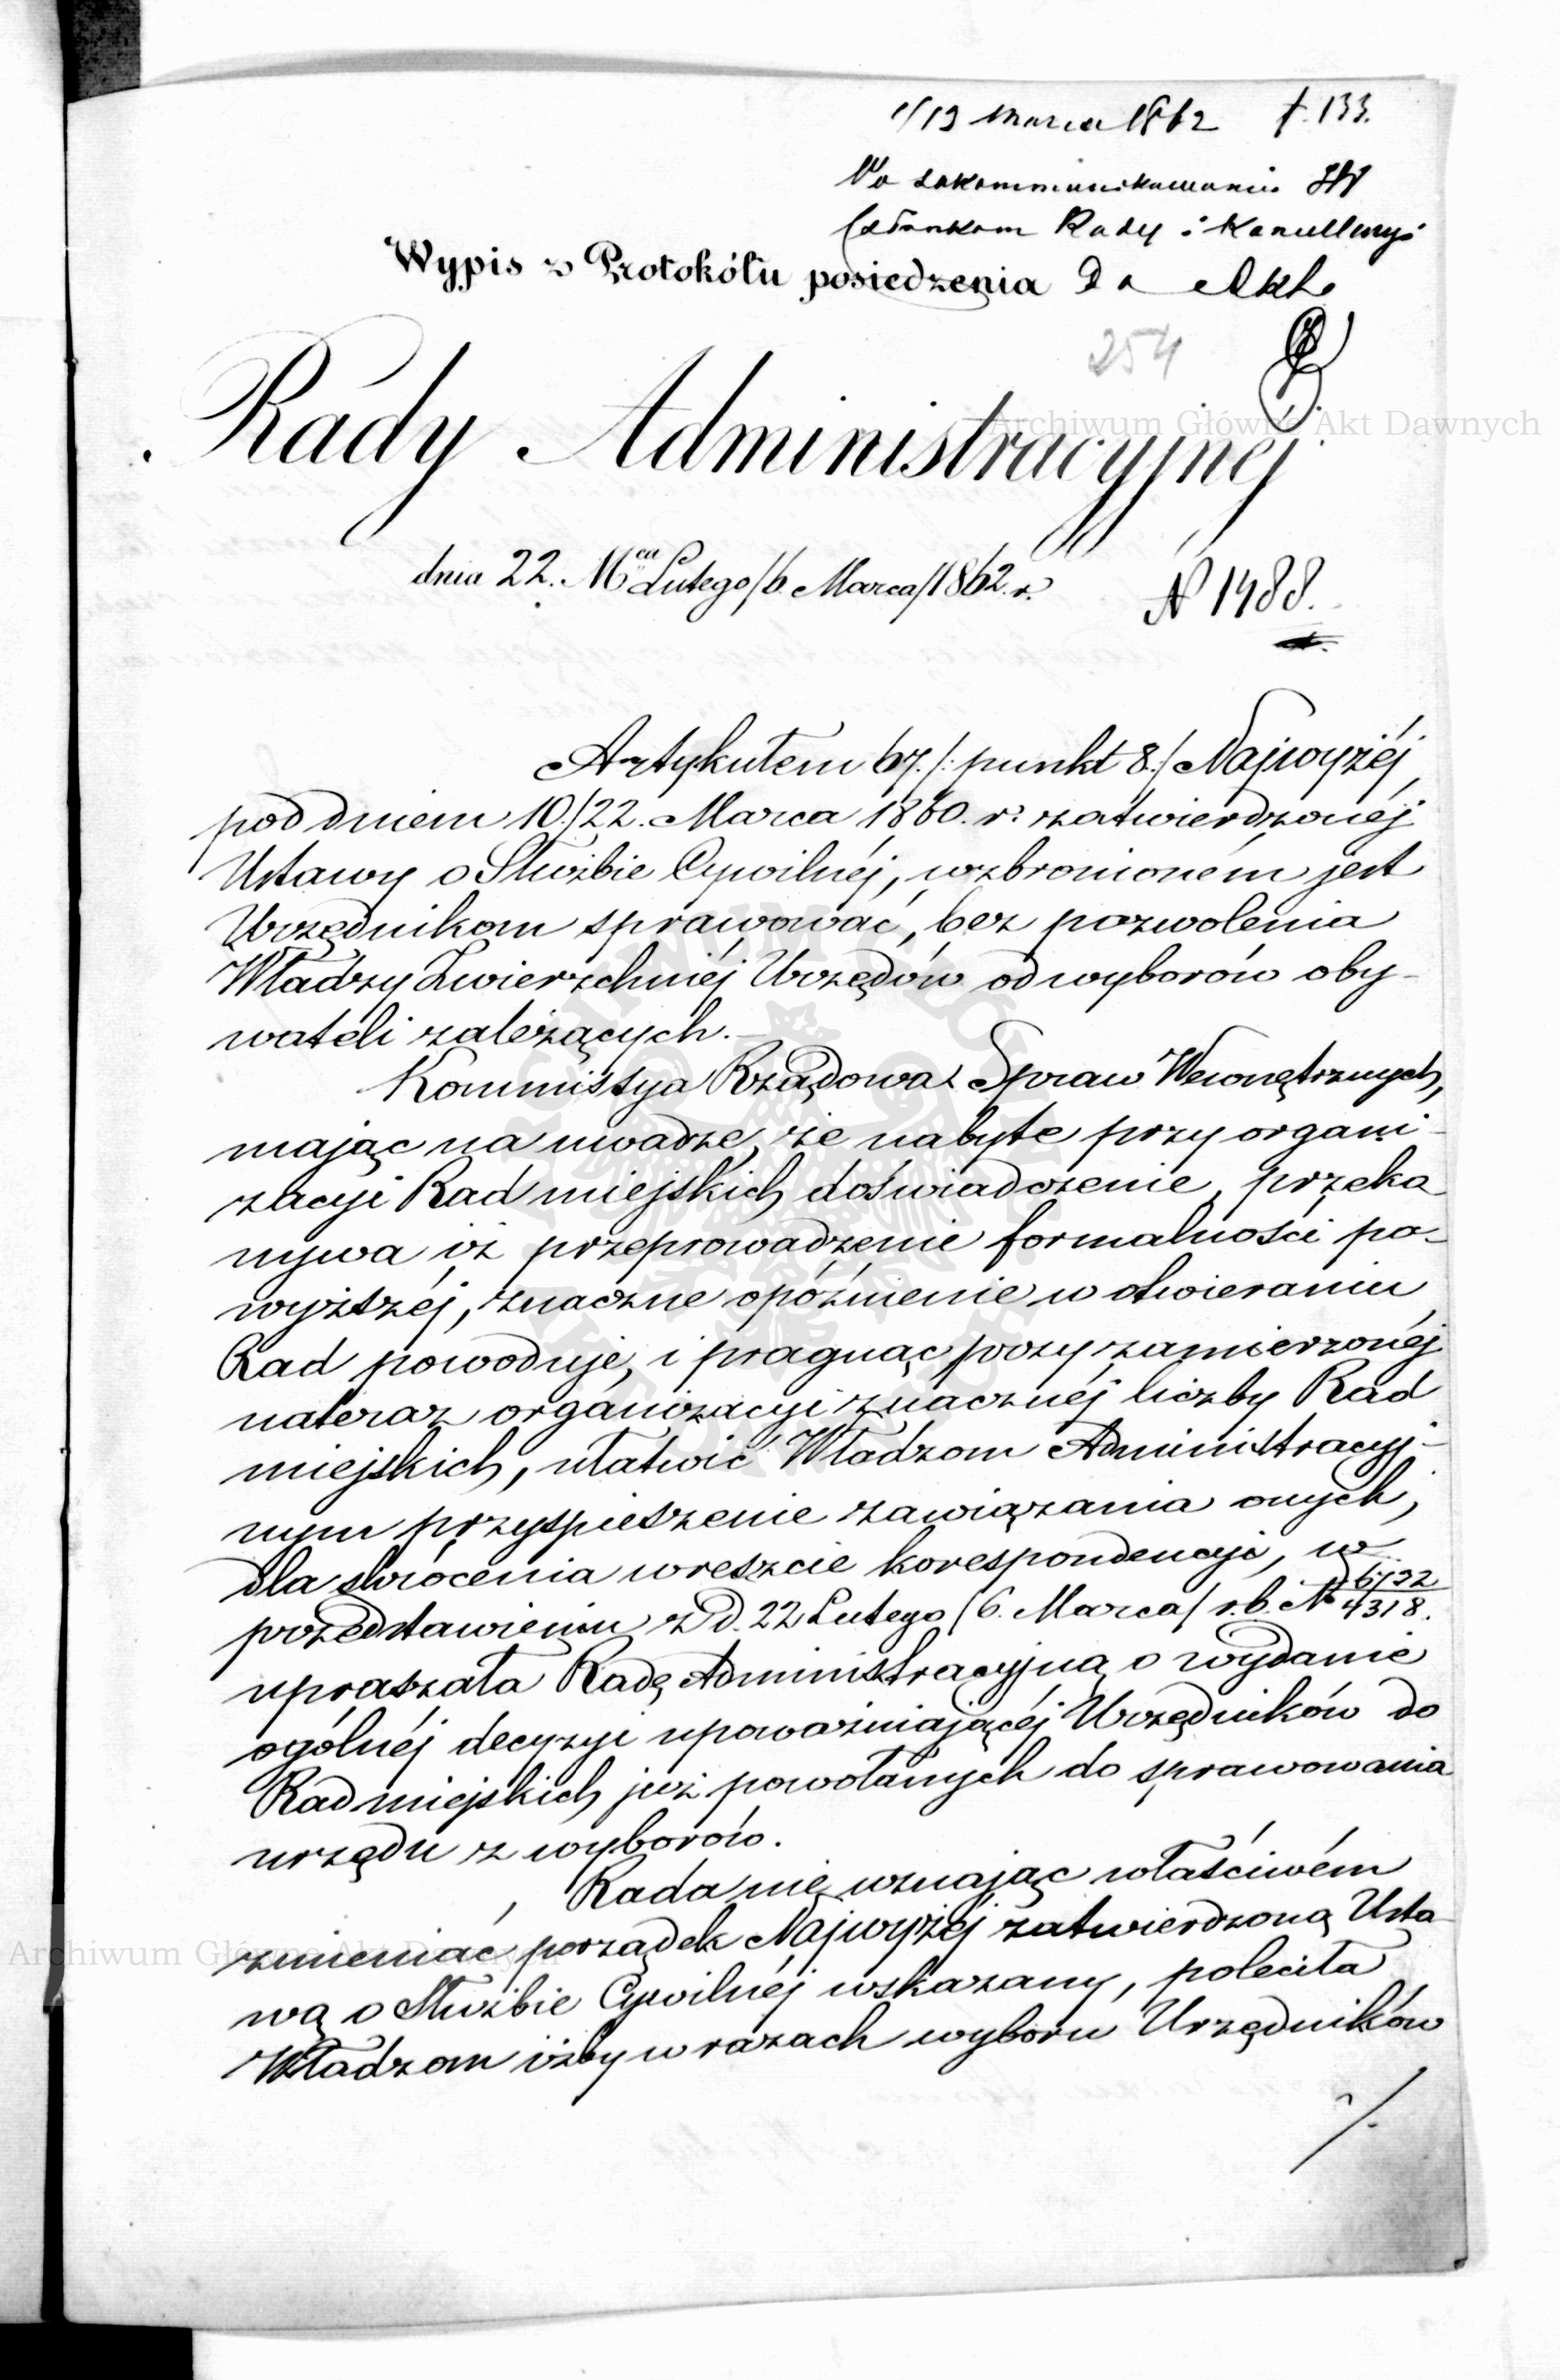 1/13 Marca 1862 f. 133.
Po zakommunikowaniu JW
Członkom Rady i Kancellaryi
Wypis z Protokółu posiedzenia Do Akt.
254
Rady Administracyjnéj.
dnia 22. Mca Lutego /6. Marca/ 1862. r.
N 1488.
Artykułem 67. /: punkt 8./ Najwyżéj
pod dniem 10./22. Marca 1860. r. zatwierdzonéj
Ustawy o Służbie Cywilnéj, wzbronioném jest
Urzędnikom sprawować, bez pozwolenia
Władzy Zwierzchniéj Urzędów od wyborów oby-
wateli zależących.
Kommissya Rządowa Spraw Wewnętrznych,
mając na uwadze, że nabyte przy organi-
zacyi Rad miejskich doświadczenie, przeko
nywa iż przeprowadzenie formalności po-
wyższéj, znaczne opóźnienie w otwieraniu
Rad powoduje, i pragnąc przy zamierzonéj
nateraz organizacyi znacznéj liczby Rad
miejskich, ułatwić Władzom Administracyj-
nym przyspieszenie zawiązania onych,
dla skrócenia wreszcie korespondencyi, w
przedstawieniu z d. 22 Lutego /6. Marca/ r. b. N 6732/4318.
upraszała Radę Administracyjną o wydanie
ogólnéj decyzyi upoważniającéj Urzędników do
Rad miejskich już powołanych do sprawowania
urzędu z wyborów.
Rada nie uznając właściwém
zmieniać porządek Najwyżéj zatwierdzoną Usta
wą o Służbie Cywilnéj wskazany, poleciła
Władzom iżby w razach wyboru Urzędników
./.
Archiwum Główne Akt Dawnych
Archiwum Główne Akt Dawnych